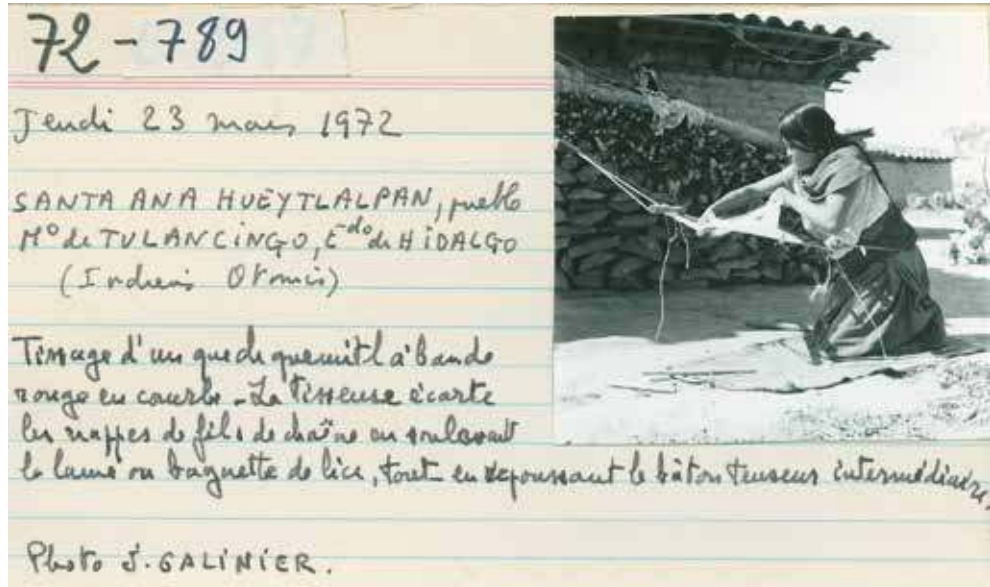 72-789
Jeudi 23 mars 1972
SANTA ANA HUEYTLALPAN, pueblo
Mº de TULANCINGO, Edo de HIDALGO
(Indiens Otomis)
Tissage d'un quechquemitl à bande
rouge en courbe - La Tisseuse écarte
les nappes de fils de chaîne en soulevant
la lame ou baguette de lice, tout en repoussant le bâton tenseur intermédiaire.
Photo J. GALINIER.